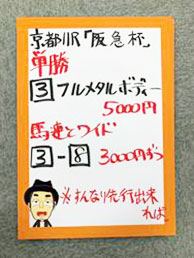 京都11R「阪急杯」
単勝
3 フルメタルボディー
5000円
馬連とワイド
3-8 3000円ずつ
※すんなり先行出来
れば